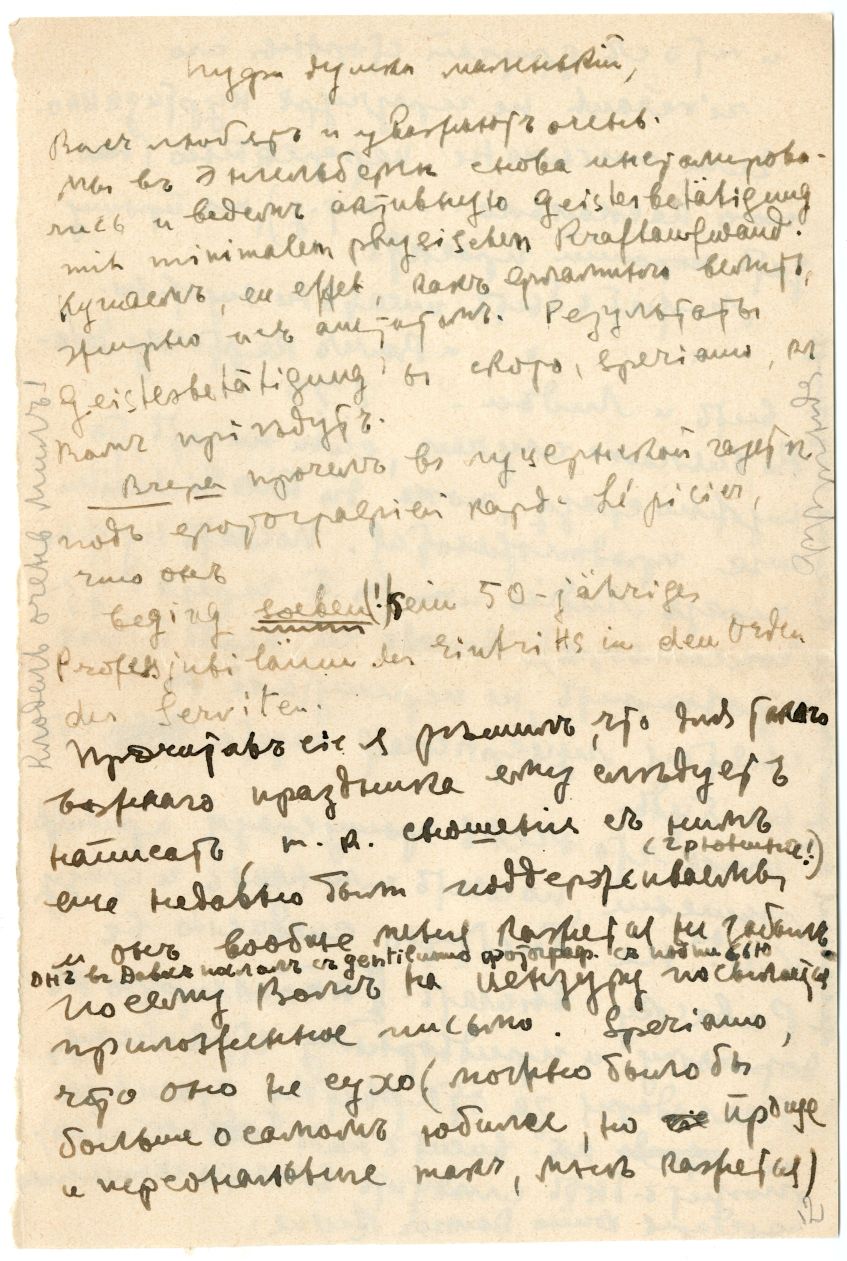 Пудра думка маленькій,
Васъ любятъ и уважаютъ очень.
мы въ Энгельбергѣ снова инсталирова-
лись и ведемъ активную Geistesbetätigung
mit minimalem physischen Kraftaufwand.
Кушаемъ, en effet, какъ
жирно и съ аппетитомъ. Результаты
Geistesbetätigung'ы скоро, speriamo, къ
Вамъ пріѣдутъ.
Вчера прочелъ въ луцернской газетѣ
подъ фотографіей кард. Lépicier,
что онъ
beging soeben (!) sein 50-jähriges
Professjubiläum des Eintritts in den Orden
der Serviten.
Прочитавъ сіе я рѣшилъ, что для такого
важнаго праздника ему слѣдуетъ
написать, т. к. сношенія съ нимъ
еще недавно были поддерживаемы
и онъ вообще меня кажется не забылъ
онъ въ Давосъ послалъ съ gentilissimo фотограф. съ подписью
Посему Вамъ на цензуру посылается
приложенное письмо. Speriamo,
что оно не сухо (можно было бы
больше о самомъ юбилеѣ, но проще
и персональнѣе такъ, мнѣ кажется)
12
Клодель очень милъ!